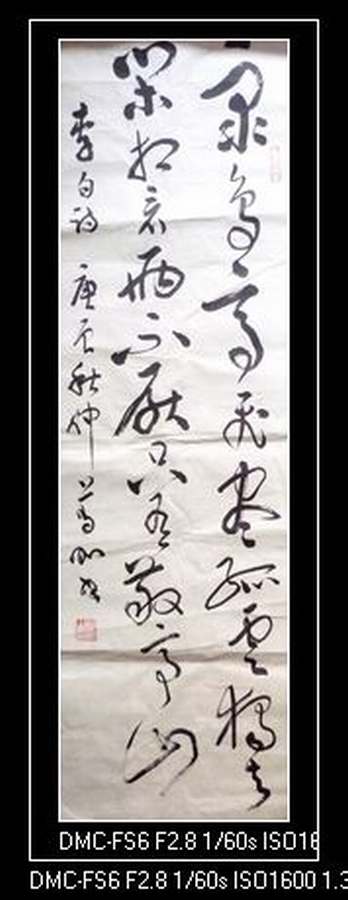 眾鳥高飛盡孤雲獨去
閑相看兩不厭只有敬亭山
李白詩 庚辰秋仲
DMC-FS6 F2.8 1/60s ISO16
DMC-FS6 F2.8 1/60s ISO1600 1.3